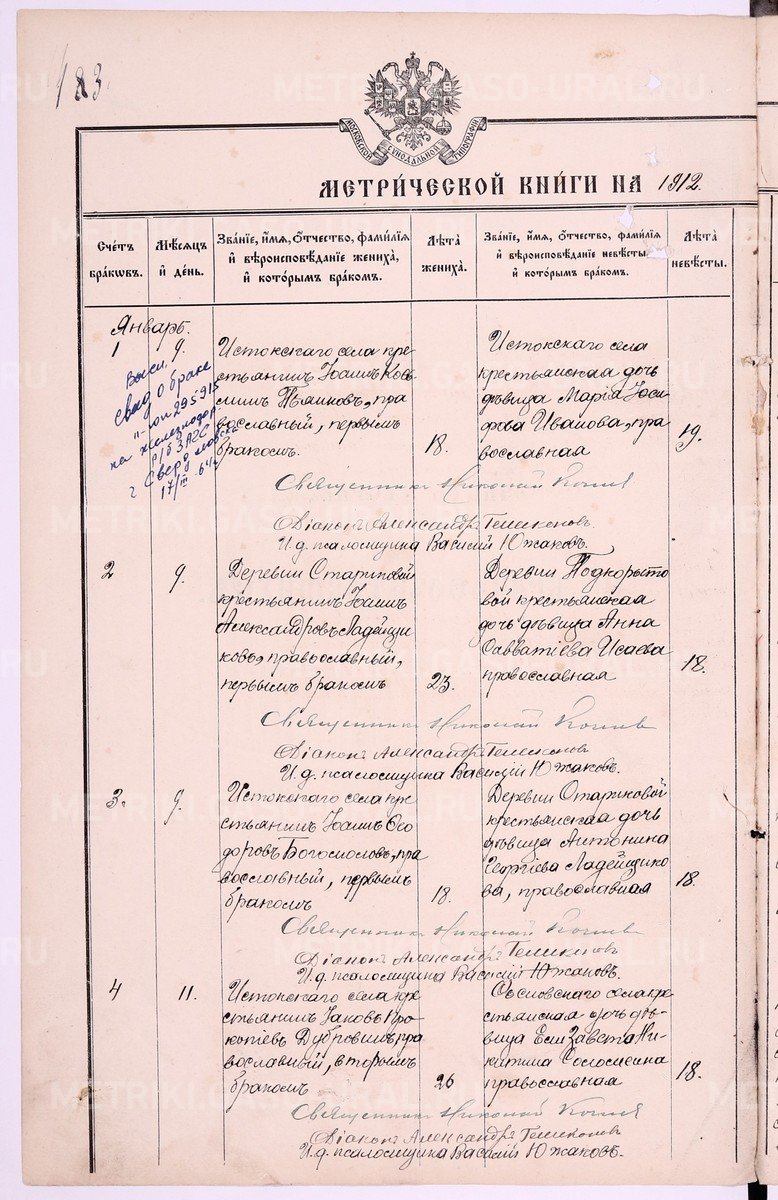 183.
МОСКОВСКОЙ СѴНОДАЛЬНОЙ ТИПОГРАФІИ
МЕТРИ́ЧЕСКОЙ КНИ́ГИ НА 1912.
Сче́тъ бра́ковъ.
Мѣ́сяцъ и҆ де́нь.
Зва́ніе, и҆́мя, ѻ҆́тчество, фами́лія и҆ вѣроисповѣ́даніе жениха̀, и҆ кото́рымъ бра́комъ.
Лѣ́та жениха̀.
Зва́ніе, и҆́мя, ѻ҆́тчество, фами́лія и҆ вѣроисповѣ́даніе невѣ́сты и҆ кото́рымъ бра́комъ.
Лѣ́та невѣ́сты.
Январь.
1
9.
свид о браке
295915
на железнодор
р/б ЗАГС
г Свердловска
17/III 64 г
Истокскаго села кре
стьянинъ Іоаннъ Кось
минъ Пьянковъ, пра
вославный, первымъ
бракомъ.
18.
Истокскаго села
крестьянская дочь
дѣвица Марія Іоси
фова Иванова, пра
вославная
19.
Священникъ Николай
Діаконъ Александръ
И. д. псаломщика Василій Южаковъ.
2
9.
Деревни Стариковой
крестьянинъ Іоаннъ
Александровъ Ладейщи
ковъ, православный,
первымъ бракомъ
23.
Деревни Подкорыто
вой крестьянская
дочь дѣвица Анна
Савватіева Исаева
православная
18.
Священникъ Николай
Діаконъ Александръ
И. д. псаломщика Василій Южаковъ.
3.
9.
Истокскаго села кре
стьянинъ Іоаннъ Ѳео
доровъ Богомоловъ, пра
вославный, первымъ
бракомъ
18.
Деревни Стариковой
крестьянская дочь
дѣвица Антонина
Георгіева Ладейщико
ва, православная
18.
Священникъ Николай
Діаконъ Александръ
И. д. псаломщика Василій Южаковъ.
4
11.
Истокскаго села кре
стьянинъ Іаковъ Про
копіевъ Дубровинъ, пра
вославный, вторымъ
бракомъ
26
Сосновскаго села кре
стьянская дочь дѣ-
вица Елизавета Ни-
китина Соломеина
православная
18.
Священникъ Николай
Діаконъ Александръ
И. д. псаломщика Василій Южаковъ.